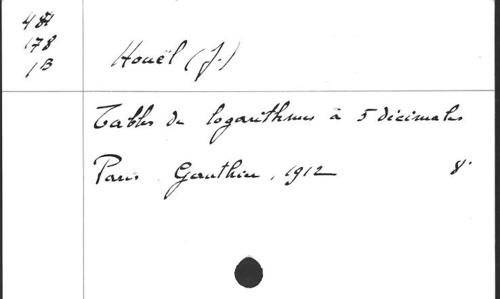 48
178
1B
Houël (J.)
Tables de logarithmes à 5 décimales
Paris Gauthier, 1912 8°